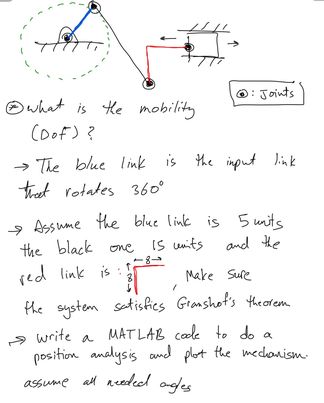 : Joints
* what is the mobility
(DoF) ?
→ The blue link is the input link
that rotates 360°
→ Assume the blue link is 5 units
the black one 15 units and the
← 8 →
red link is : 8 , Make sure
the system satisfies Granshof's theorem
→ write a MATLAB code to do a
position analysis and plot the mechanism.
assume all needed angles